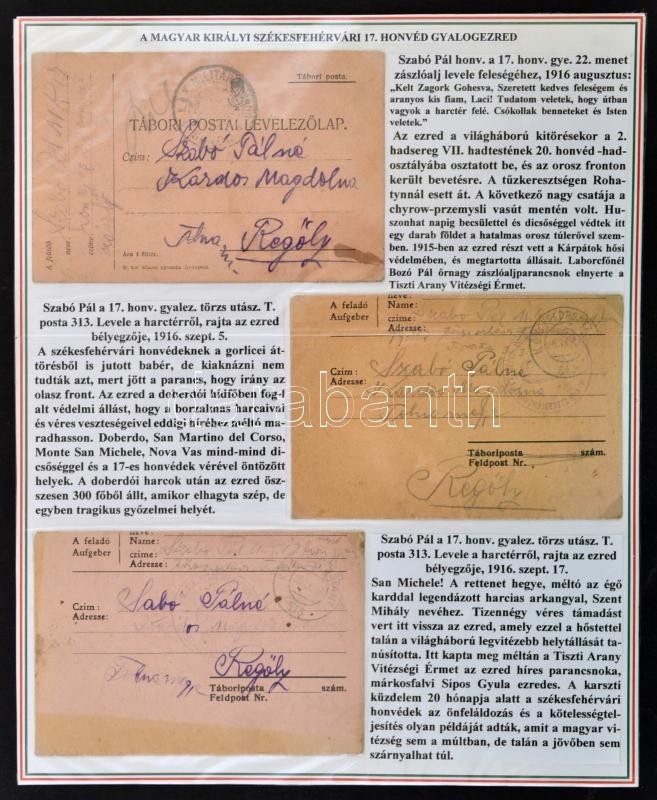 A MAGYAR KIRÁLYI SZÉKESFEHÉRVÁRI 17. HONVÉD GYALOGEZRED
Tábori posta.
TÁBORI POSTAI LEVELEZŐLAP.
Czim:
Szabó Pálné
Kardos Magdolna
Tolna m.
Regöly
A feladó
neve:
czime:
Ára 1 fillér.
Szabó Pál honv. a 17. honv. gye. 22. menet
zászlóalj levele feleségéhez, 1916 augusztus:
„Kelt Zagork Gohesva, Szeretett kedves feleségem és
aranyos kis fiam, Laci! Tudatom veletek, hogy útban
vagyok a harctér felé. Csókollak benneteket és Isten
veletek.”
Az ezred a világháború kitörésekor a 2.
hadsereg VII. hadtestének 20. honvéd -had-
osztályába osztatott be, és az orosz fronton
került bevetésre. A tűzkeresztségen Roha-
tynnál esett át. A következő nagy csatája a
chyrow-przemysli vasút mentén volt. Hu-
szonhat napig becsülettel és dicsőséggel védték itt
egy darab földet a hatalmas orosz túlerővel szem-
ben. 1915-ben az ezred részt vett a Kárpátok hősi
védelmében, és megtartotta állásait. Laborcfőnél
Bozó Pál őrnagy zászlóaljparancsnok elnyerte a
Tiszti Arany Vitézségi Érmet.
Szabó Pál a 17. honv. gyalez. törzs utász. T.
posta 313. Levele a harctérről, rajta az ezred
bélyegzője, 1916. szept. 5.
A székesfehérvári honvédeknek a gorlicei át-
törésből is jutott babér, de kiaknázni nem
tudták azt, mert jött a parancs, hogy irány az
olasz front. Az ezred a doberdói hídfőben fog-
alt védelmi állást, hogy a borzalmas harcaival
és véres veszteségeivel eddigi híréhez méltó ma-
radhasson. Doberdo, San Martino del Corso,
Monte San Michele, Nova Vas mind-mind di-
csőséggel és a 17-es honvédek vérével öntözött
helyek. A doberdói harcok után az ezred ösz-
szesen 300 főből állt, amikor elhagyta szép, de
egyben tragikus győzelmei helyét.
A feladó
Aufgeber
neve:
Czim:
Adresse:
Szabó Pálné
Kardos Magdolna
Tolna m.
Táboriposta
Feldpost Nr.
szám.
Regöly
darabanth
A feladó
Aufgeber
Name:
czime:
Adresse:
Czim:
Adresse:
Sabó Pálné
Tolna m.
Regöly
Táboriposta
Feldpost Nr.
szám.
Szabó Pál a 17. honv. gyalez. törzs utász. T.
posta 313. Levele a harctérről, rajta az ezred
bélyegzője, 1916. szept. 17.
San Michele! A rettenet hegye, méltó az égő
karddal legendázott harcias arkangyal, Szent
Mihály nevéhez. Tizennégy véres támadást
vert itt vissza az ezred, amely ezzel a hőstettel
talán a világháború legvitézebb helytállását ta-
núsította. Itt kapta meg méltán a Tiszti Arany
Vitézségi Érmet az ezred híres parancsnoka,
márkosfalvi Sipos Gyula ezredes. A karszti
küzdelem 20 hónapja alatt a székesfehérvári
honvédek az önfeláldozás és a kötelességtel-
jesítés olyan példáját adták, amit a magyar vi-
tézség sem a múltban, de talán a jövőben sem
szárnyalhat túl.